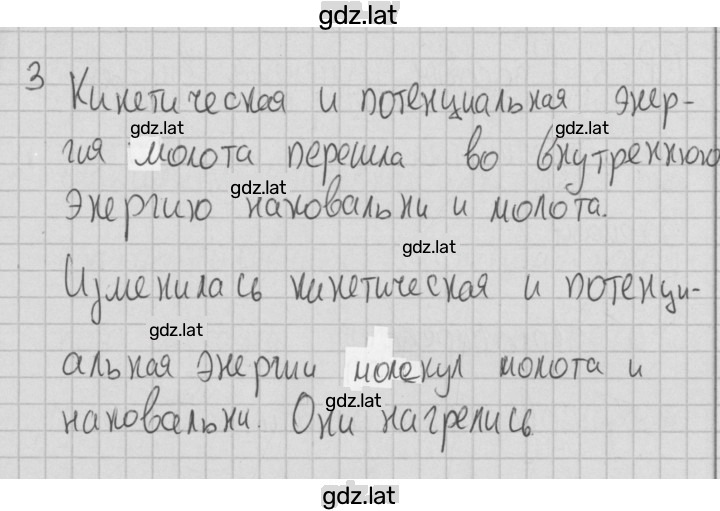 gdz.lat
3 Кинетическая и потенциальная энер-
gdz.lat gdz.lat
гия молота перешла во внутреннюю
gdz.lat
энергию наковальни и молота.
gdz.lat
Изменилась кинетическая и потенци-
gdz.lat
альная энергии молекул молота и
gdz.lat
наковальни. Они нагрелись
gdz.lat